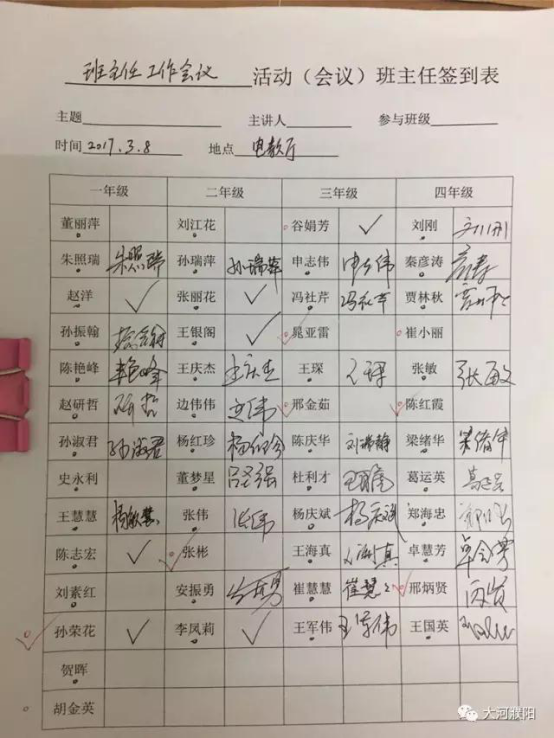 班主任工作会议 活动（会议）班主任签到表
主题 主讲人 参与班级
时间 2017.3.8 地点 电教厅
一年级 二年级 三年级 四年级
董丽萍 刘江花 谷娟芳 ✓ 刘刚 刘刚
朱照瑞 朱照瑞 孙瑞萍 孙瑞萍 申志伟 申志伟 秦彦涛
赵洋 ✓ 张丽花 ✓ 冯社芹 冯社芹 贾林秋
孙振翰 王银阁 ✓ 晁亚雷 崔小丽
陈艳峰 艳峰 王庆杰 王庆杰 王琛 张敏 张敏
赵研哲 研哲 边伟伟 邢金茹 陈红霞
孙淑君 孙淑君 杨红珍 陈庆华 刘沸静 梁绪华
史永利 董梦星 杜利才 葛运英
王慧慧 杨敏慧 张伟 张伟 杨庆斌 杨庆斌 郑海忠
陈志宏 ✓ 张彬 王海真 卓慧芳
刘素红 安振勇 崔慧慧 崔慧 邢炳贤
孙荣花 ✓ 李凤莉 ✓ 王军伟 王军伟 王国英
贺晖
胡金英
大河濮阳